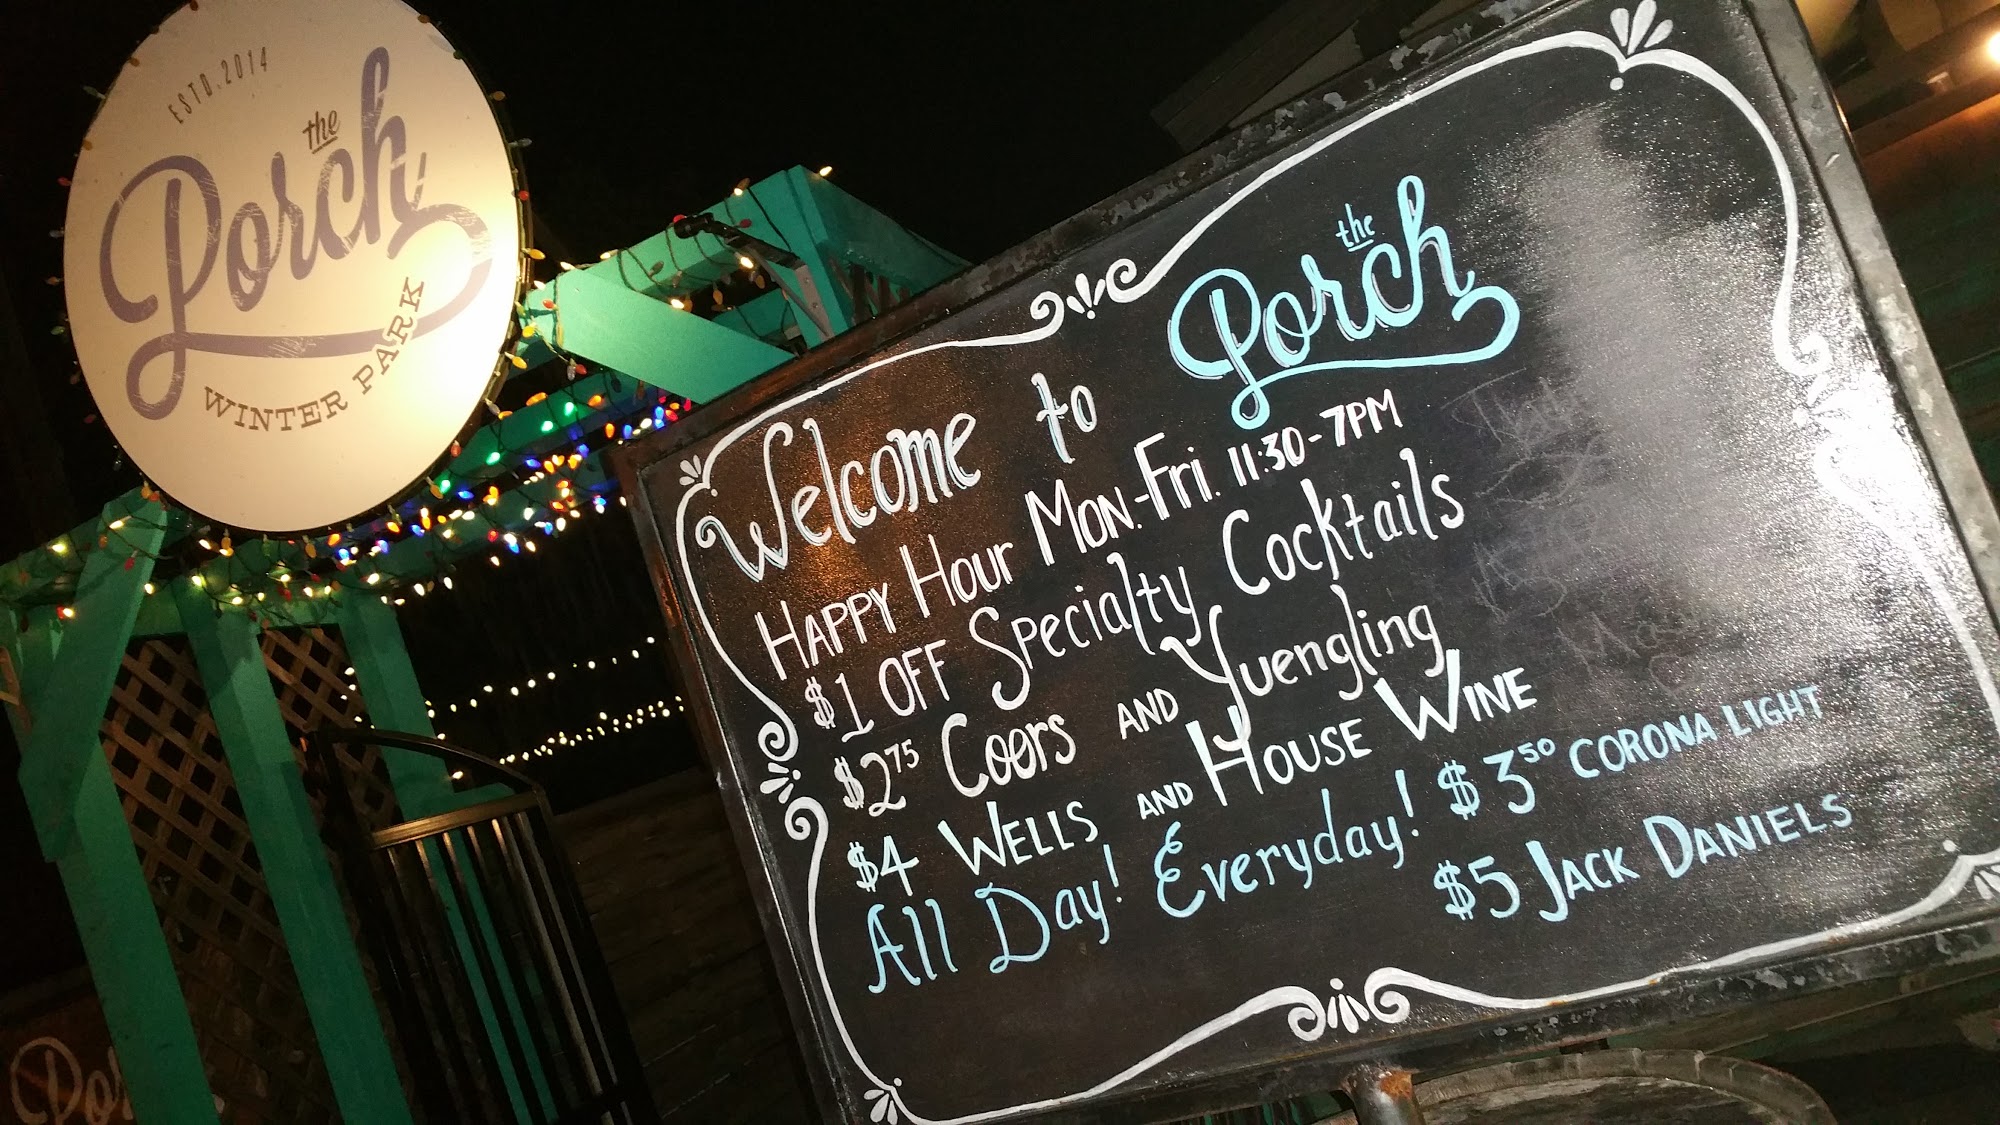 ESTD. 2014
the
Porch
WINTER PARK
the
Porch
Welcome to
HAPPY Hour Mon.-Fri. 11:30-7PM
$1 OFF Specialty Cocktails
$2.75 Coors AND Yuengling
$4 WELLS AND HOUSE WINE
All Day! Everyday! $3.50 CORONA LIGHT
$5 JACK DANIELS